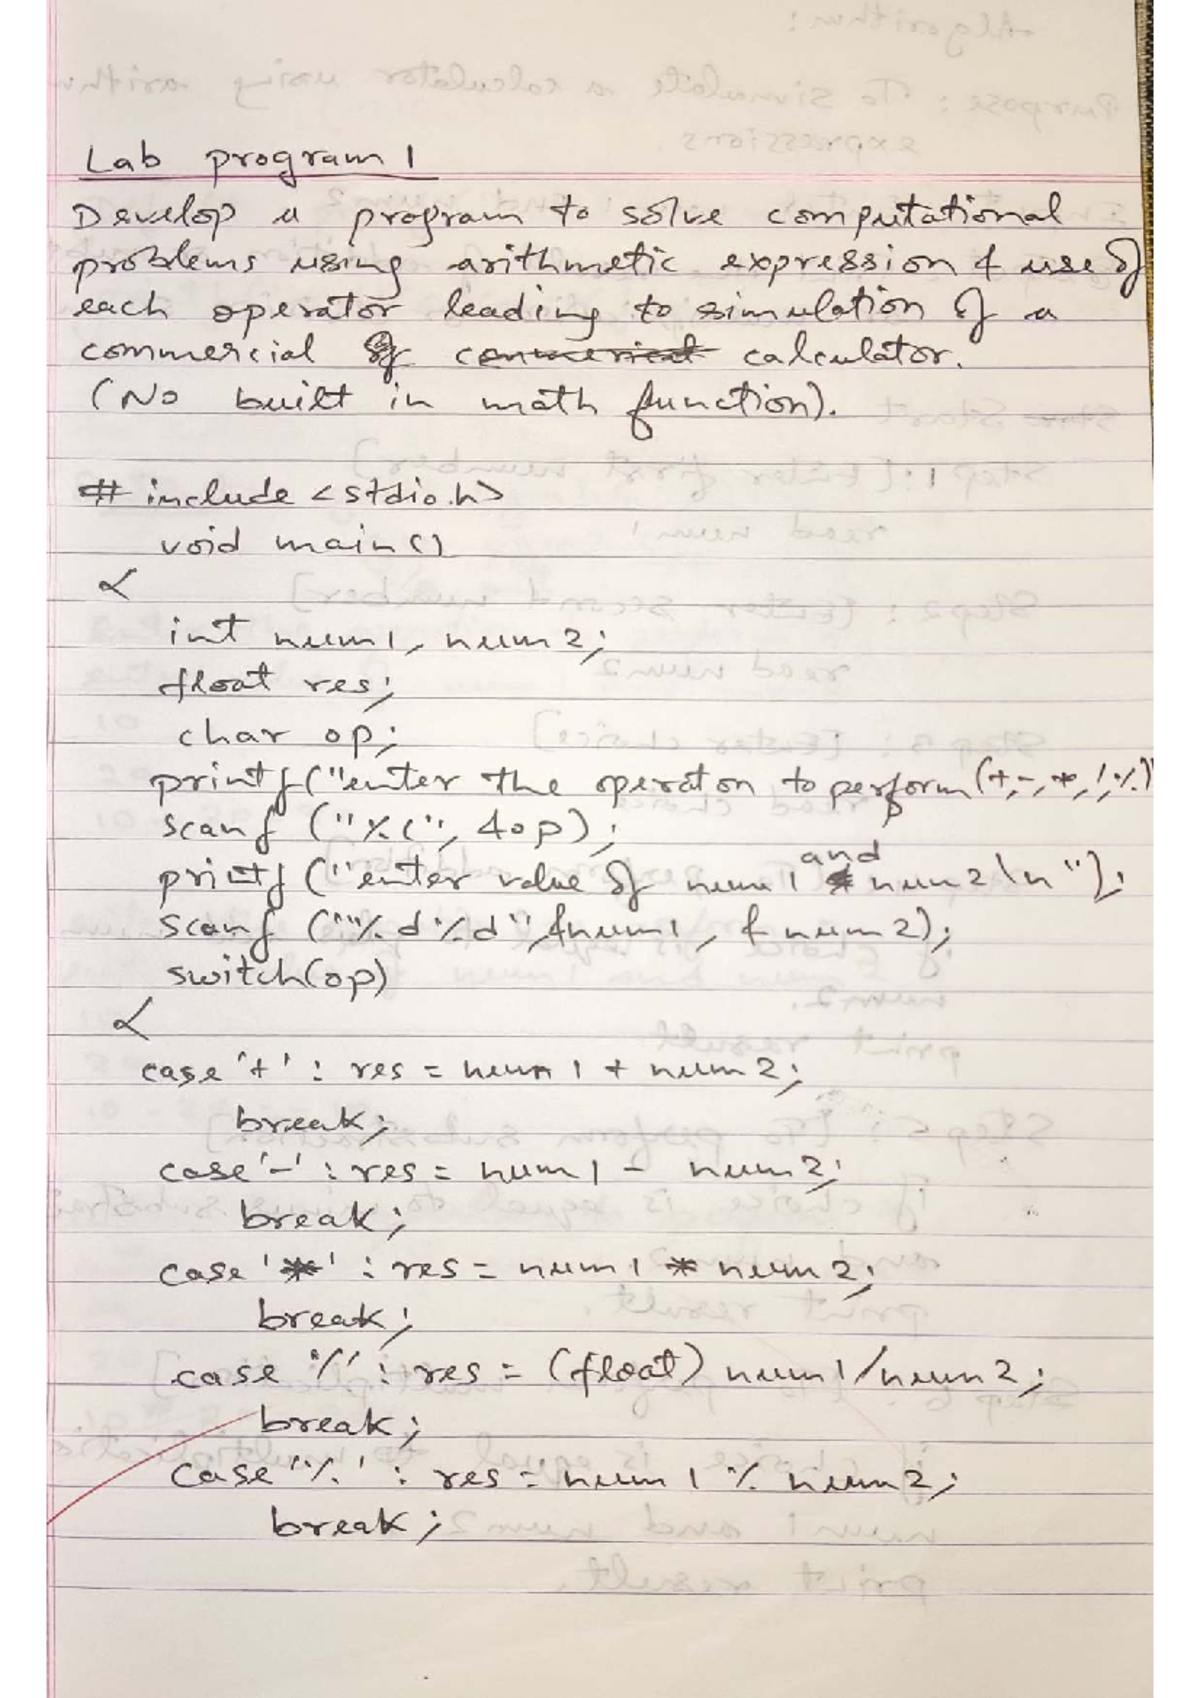 Lab program 1
Develop a program to solve computational
problems using arithmetic expression & use of
each operator leading to simulation of a
commercial calculator.
(No built in math function).
# include <stdio.h>
void main()
{
int num1, num2;
float res;
char op;
printf("enter the operation to perform (+,-,*,/,%)"
scanf ("%c", &op);
printf ("enter value of num1 and num2\n");
scanf ("%d%d", &num1, & num2);
switch(op)
{
case '+' : res = num1 + num2;
break;
case '-' : res = num1 - num2;
break;
case '*' : res = num1 * num2;
break;
case '/' : res = (float) num1/num2;
break;
case '%' : res = num1 % num2;
break;